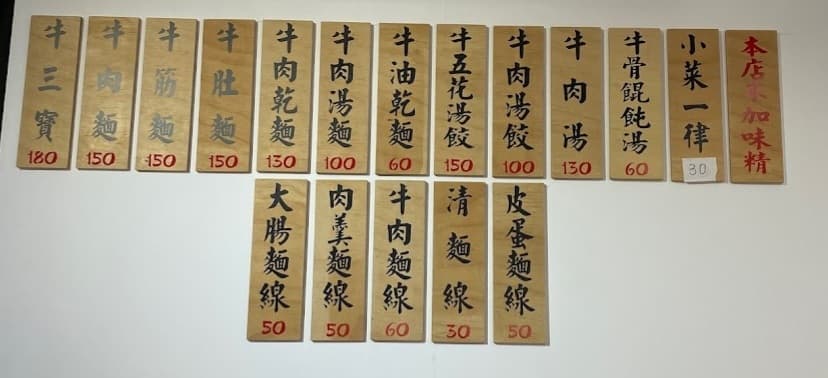 牛三寶 180
牛肉麵 150
牛筋麵 150
牛肚麵 150
牛肉乾麵 130
牛肉湯麵 100
牛油乾麵 60
牛五花湯餃 150
牛肉湯餃 100
牛肉湯 130
牛骨餛飩湯 60
小菜一律 30
本店不加味精
大腸麵線 50
肉羹麵線 50
牛肉麵線 60
清麵線 30
皮蛋麵線 50